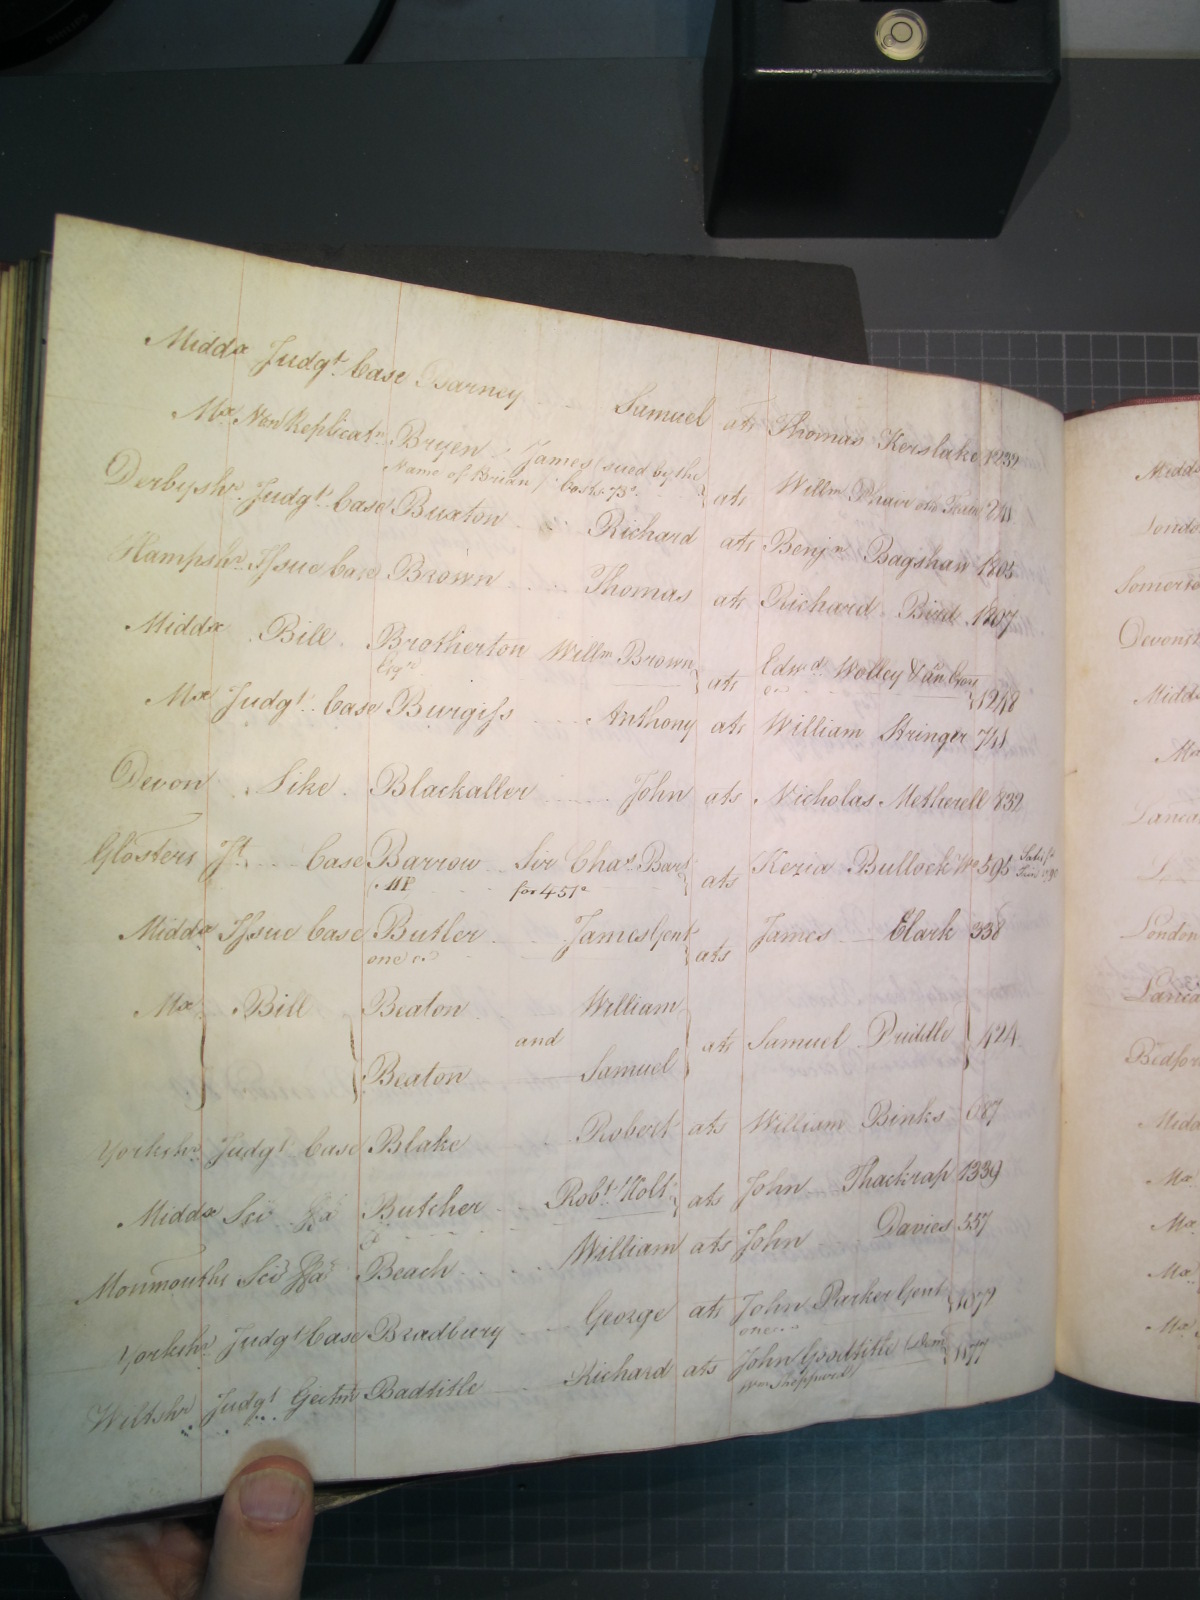 Midd.x Judgt. Case Barney Samuel ats Thomas Kerslake 1232
Mx Non Replicatn. Bryen James (sued by the
Name of Brian) Costs 73s. } ats Willm. 241
Derbyshr. Judgt. Case Buxton Richard ats Benjn. Bagshaw 1805
Hampshr. Issue Case Brown Thomas ats Richard Bird 1807
Middx Bill Brotherton Willm. Brown } ats Edwd. Wolley & an. Exors
Esqr. 1248
Mx Judgt. Case Burgiss Anthony ats William Stringer 741
Devon Like Blackaller John ats Nicholas Metherell 832
Glosters Jt. Case Barrow Sir Chas. Bart } ats Kezia Bullock Wo 595
MP for 451s
Middx Issue Case Butler James Gent } ats James Clark 338
one &c
Mx Bill Beaton William
and } ats Samuel Puddle } 424
Beaton Samuel
Yorkshr. Judgt. Case Blake Robert ats William Binks 687
Middx Sci Fa Butcher Robt. Holt } ats John Thackrah 1339
Monmouths Sci Fa Beach William ats John Davies 337
Yorkshr. Judgt. Case Bradbury George ats John Parker Gent
one &c
Wiltshr. Judgt. Ejectmt. Badtitle Richard ats John Goodtitle (Dem 1177
Wm Sheppard)
Midds
Londo
Somerse
Devonsh
Midds
Mx
Lanca
London
Lanca
Bedfor
Midd
Mx
Mx
Mx
Mx